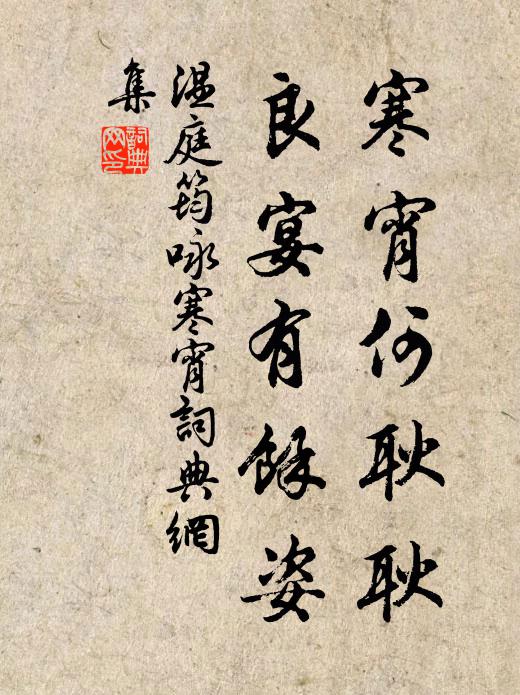 寒宵何耿耿
良宴有餘姿
溫庭筠咏寒宵詞典網
集
詞典
网印